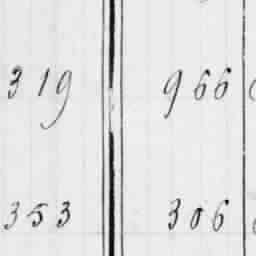 319 966
353 306